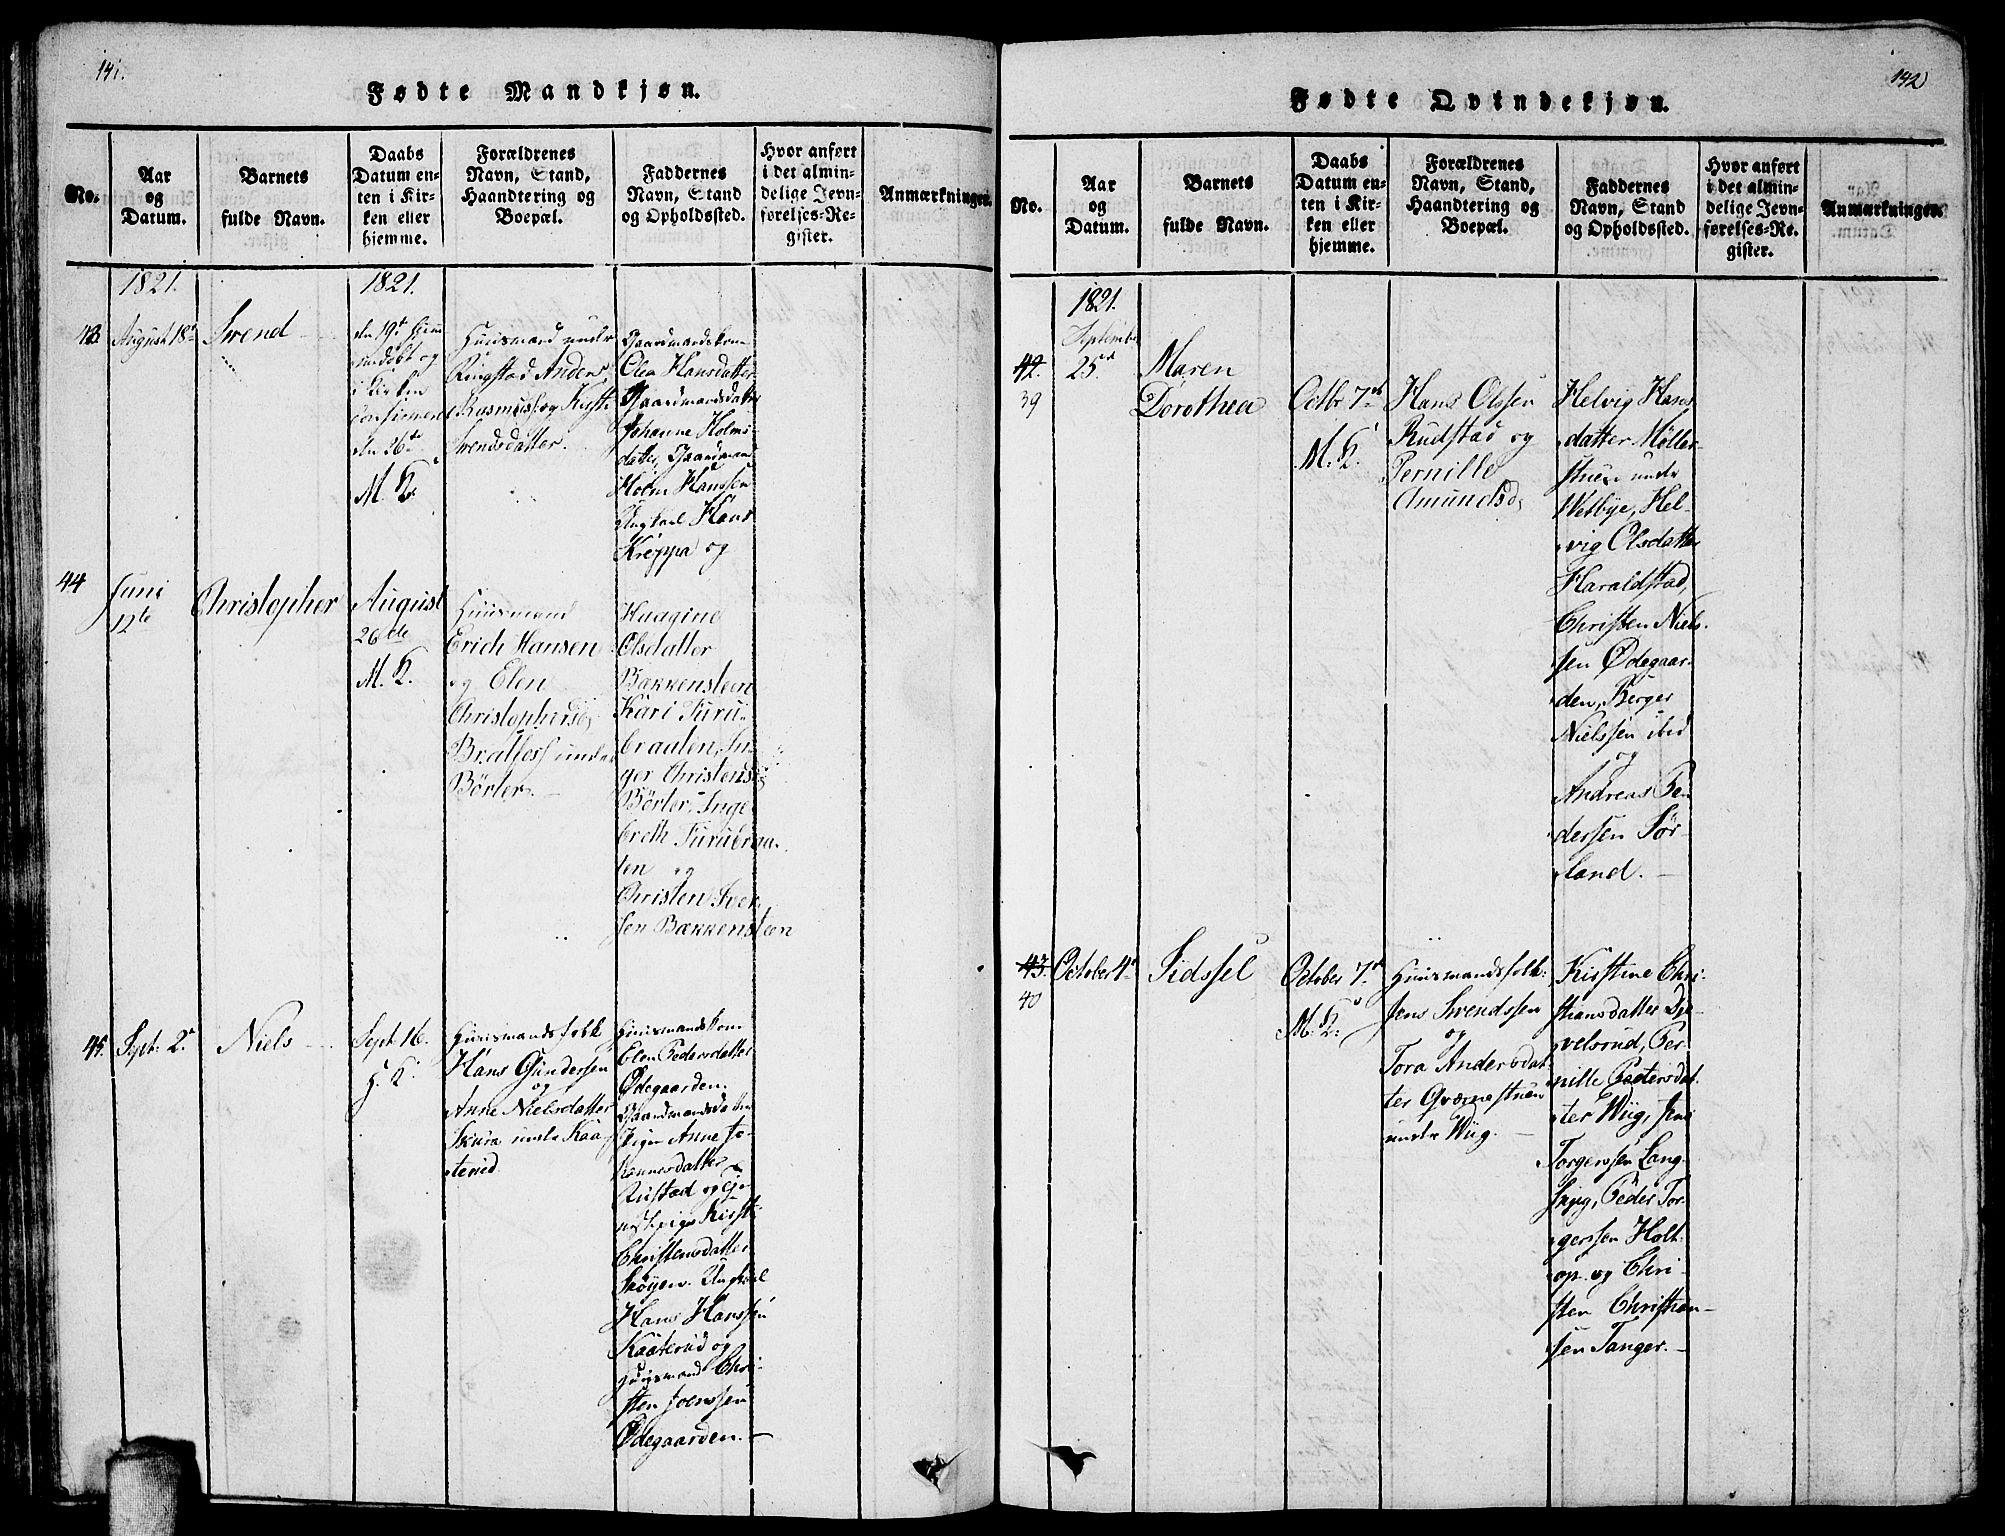 141.
Fødte Mandkjøn.
No.
Aar
og
Datum.
Barnets
fulde Navn.
Daabs
Datum en-
ten i Kir-
ken eller
hjemme.
Forældrenes
Navn, Stand,
Haandtering og
Boepæl.
Faddernes
Navn, Stand
og Opholdssted.
Hvor anført
i det almin-
delige Jevn-
førelses-Re-
gister.
Anmærkninger.
1821.
43.
August 18de
Svend
1821.
den 19de hjem
medøbt og
i Kirken
confirmeret
den 26de
M. K.
Huusmand under
Ringstad Anders
Rasmuss. og Kysti
Svendsdatter.
Gaardmandskone
Olea Hansdatter
Gaardmandsdatter
Johanne Holms-
datter, Gaardmand
Holm Hanssen
Ungkarl Hans
Kreppa og
44
Juni
12te
Christopher
August
26de
M. K.
Huusmand
Erich Hansen
og Elen
Christophersd.
Bratfoss under
Börter.
Haagine
Olsdatter
Bækkensteen
Kari Furu-
braaten, In-
ger Christensd.
Börter, Inge-
breth Furubraa-
ten og
Christen Iver-
sen Bækkensteen
45.
Sept: 2d
Niels
Sept 16.
H. K.
Huusmandsfolk
Hans Gundersen
og
Anne Nielsdatter
Skura under Kaa-
terud
Huusmandskone
Elen Pedersdatter
Ødegaarden.
Gaardmandsdatter
Pigen Anne Jo-
hannesdatter
Rustad og
Kirsti
Christensdatter
Skøyen. Ungkarl
Hans Hanssen
Kaaterud og
Huusmand Chri-
sten Joenssen
Ødegaarden.
142
Fødte Qvindekjøn.
No.
Aar
og
Datum.
Barnets
fulde Navn.
Daabs
Datum en-
ten i Kir-
ken eller
hjemme.
Forældrenes
Navn, Stand,
Haandtering og
Boepæl.
Faddernes
Navn, Stand
og Opholdssted.
Hvor anført
i det almin-
delige Jevn-
førelses-Re-
gister.
Anmærkninger.
1821.
42.
39
September
25d
Maren
Dorothea
Octbr 7de
M. K.
Hans Olssen
Rudstad og
Pernille
Amundsd.
Helvig Hans
datter Møller-
stuen under
Wetbye, Hel-
vig Olsdatter
Haraldstad,
Christen Niels-
sen Ødegaar-
den, Berger
Nielssen ibid
og
Andreas Pe-
derssen Sør-
land.
43.
40
October 4d
Sidssel
October 7d
M. K.
Huusmandsfolk:
Jens Svendssen
og
Tora Andersdat-
ter Qværnestuen
under Wiig.
Kirstine Chri-
stiansdatter Dye-
velsrud, Per-
nille Peetersdat-
ter Wiig, Jens
Torgerssen Lang-
Peder Tor-
gerssen Holt-
op. og Chri-
sten Christian-
sen Tanger.